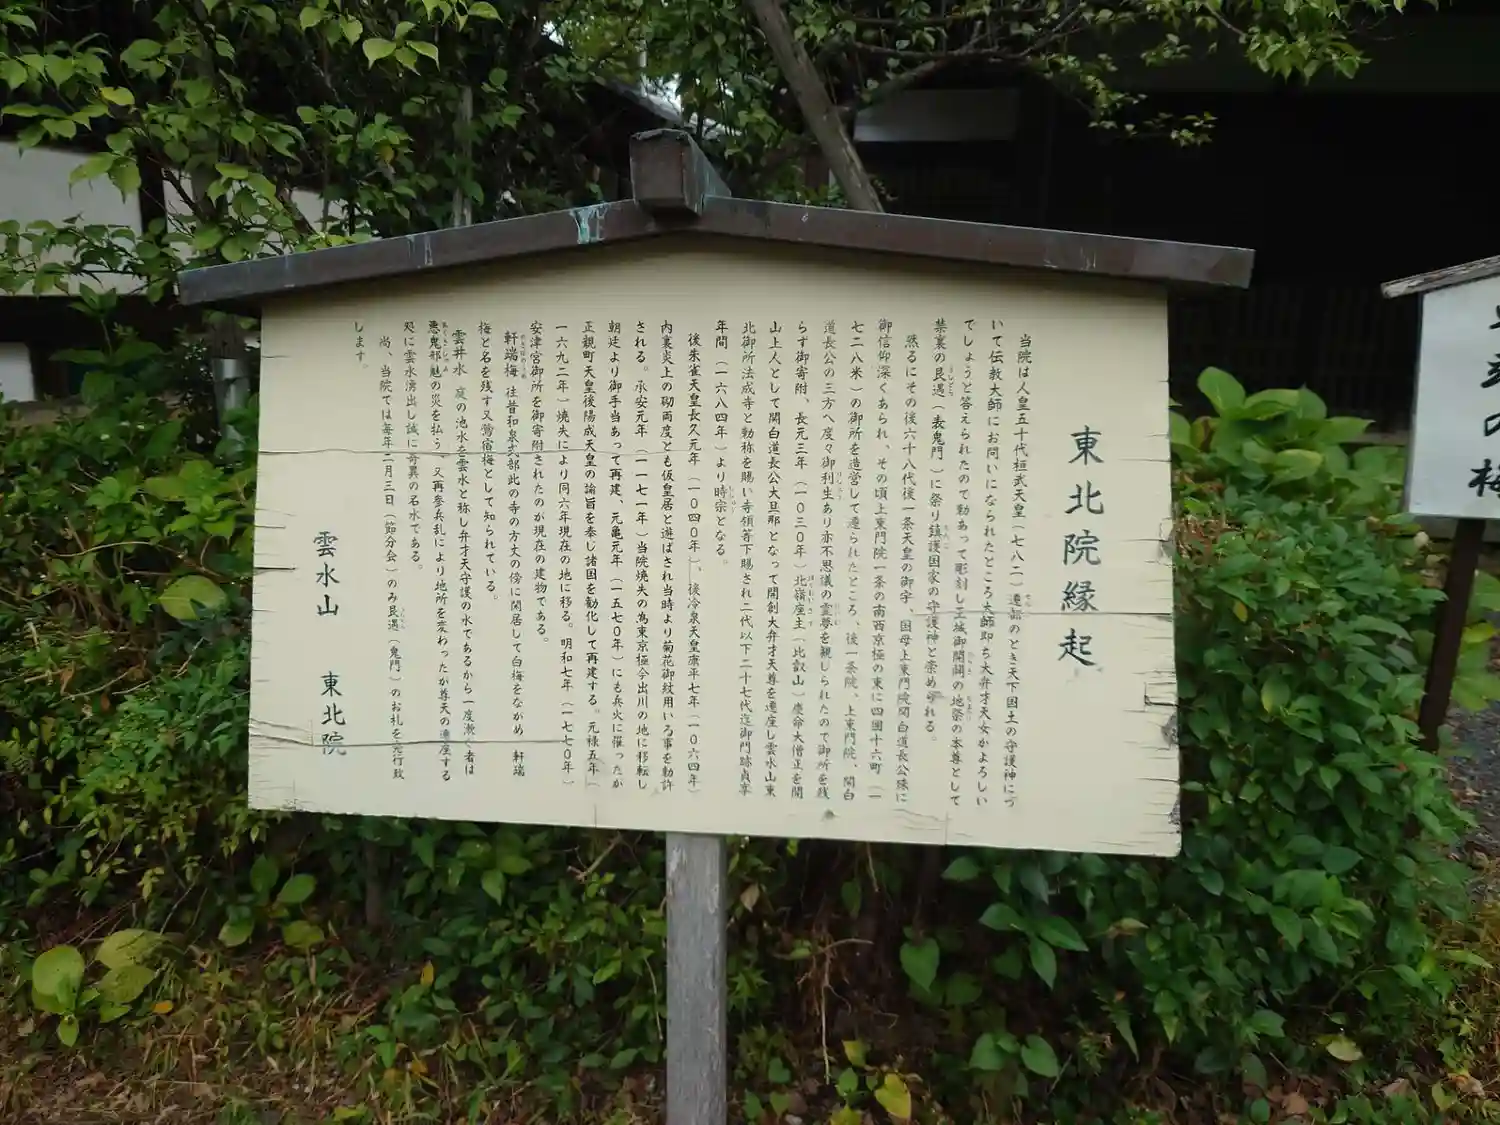 東北院縁起
当院は人皇五十代桓武天皇（七八二）遷都のとき天下国土の守護神につ
いて伝教大師にお問いになられたところ大師即ち大弁才天女がよろしい
でしょうと答えられたので勅あって彫刻し王城御開闢の地祭の本尊として
禁裏の艮遇（表鬼門）に祭り鎮護国家の守護神と崇め奉れる。
然るにその後六十八代後一条天皇の御宇、国母上東門院関白道長公殊に
御信仰深くあられ、その頃上東門院一条の南西京極の東に四国十六町（一
七二八米）の御所を造営して遷られたところ、後一条院、上東門院、関白
道長公の三方へ度々御利生あり亦不思議の霊夢を観じられたので御所を残
らず御寄附、長元三年（一〇三〇年）北嶺座主（比叡山）慶命大僧正を開
山上人として関白道長公大旦那となって開創大弁才天尊を遷座し雲水山東
北御所法成寺と勅称を賜い寺領等下賜され二代以下二十七代迄御門跡貞享
年間（一六八四年）より時宗となる。
後朱雀天皇長久元年（一〇四〇年）、後冷泉天皇康平七年（一〇六四年）
内裏炎上の砌両度とも仮皇居と遊ばされ当時より菊花御紋用いる事を勅許
される。承安元年（一一七一年）当院焼失の為東京極今出川の地に移転し
朝廷より御手当あって再建、元亀元年（一五七〇年）にも兵火に罹ったが
正親町天皇後陽成天皇の論旨を奉じ諸国を勧化して再建する。元禄五年（
一六九二年）焼失により同六年現在の地に移る。明和七年（一七七〇年）
安津宮御所を御寄附されたのが現在の建物である。
軒端梅 往昔和泉式部此の寺の方丈の傍に閑居して白梅をながめ 軒端
梅と名を残す又鶯宿梅として知られている。
雲井水 庭の池水を雲水と称し弁才天守護の水であるから一度漱ぐ者は
悪鬼邪魅の災を払う、又再参兵乱により地所を変わったが尊天の遷座する
処に雲水湧出し誠に奇異の名水である。
尚、当院では毎年二月三日（節分会）のみ艮遇（鬼門）のお札を発行致
します。
雲水山 東北院
の梅